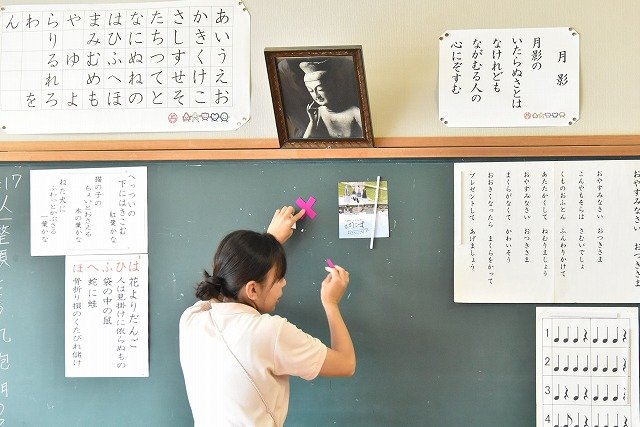 あいうえお
かきくけこ
さしすせそ
たちつてと
なにぬねの
はひふへほ
まみむめも
や ゆ よ
らりるれろ
わ を
ん
月影
月影の
いたらぬさとは
なけれども
ながむる人の
心にぞすむ
へっついの
下にはきこむ
紅葉かな
猫の子の
ちょいとおさえる
木の葉かな
ねた犬に
ふわとかぶさる
一葉かな
はひふへほ
花よりだんご
人は見掛けに依らぬもの
袋の中の鼠
蛇に蛙
骨折り損のくたびれ儲け
おやすみなさい おつきさま
おやすみなさい おつきさま
こんやもそらは さむいでしょ
くものおふとん ふんわりかけて
あたたかくして ねむりましょう
おやすみなさい おつきさま
まくらがなくて かわいそう
おおきくなったら まくらをかって
プレゼントして あげましょう
1
2
3
4